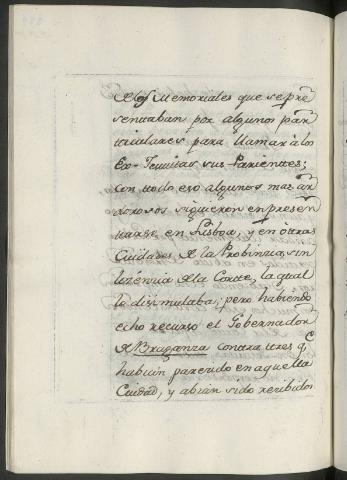 de los Memoriales que se pre
sentaban por algunos par
ticulares para llamar à los
Ex-Jesuitas sus Parientes;
con todo eso algunos mas ar
dorosos siguieron en presen
tarse en Lisboa, y en òtras
Ciudades de la Probinzia, sin
lizénzia de la Corte, la qual
lo disimulaba; pero habiendo
echo recurso el Gobernador
de Braganza contra tres q.e
habian parecido en aquella
Ciudad, y abian sido recibidos